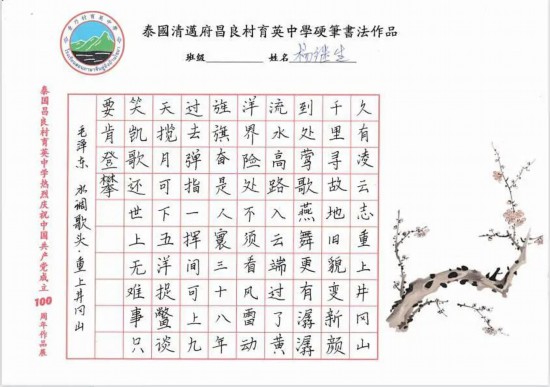 泰國清邁府昌良村育英中學硬筆書法作品
班级 姓名 杨继生
久有凌云志重上井冈山
千里寻故地旧貌变新颜
到处莺歌燕舞更有潺潺
流水高路入云端过了黄
洋界险处不须看风雷动
旌旗奋是人寰三十八年
过去弹指一挥间可上九
天揽月可下五洋捉鳖谈
笑凯歌还世上无难事只
要肯登攀
毛泽东 水调歌头·重上井冈山
泰国昌良村育英中学热烈庆祝中国共产党成立100周年作品展